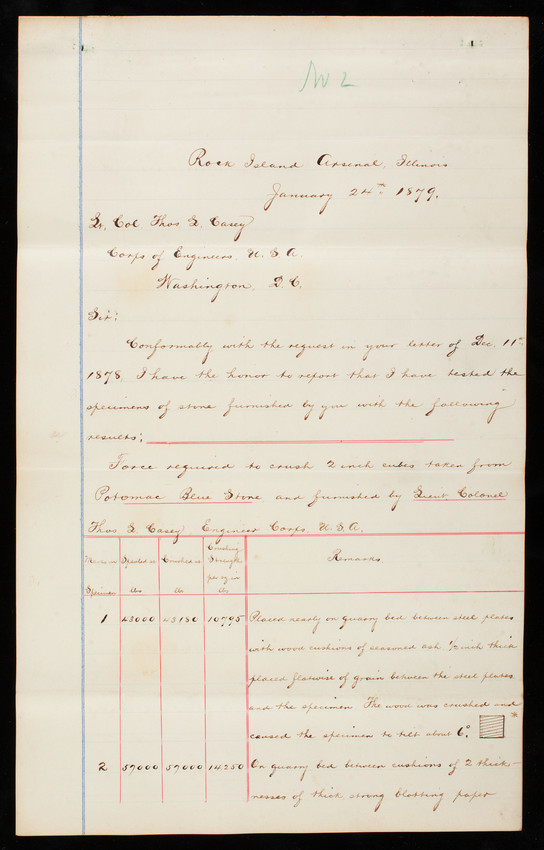 No 2
Rock Island Arsenal, Illinois
January 24th 1879.
Lt. Col. Thos L. Casey
Corps of Engineers U.S.A.
Washington, D.C.
Sir:
Conformably with the request in your letter of Dec. 11th
1878, I have the honor to report that I have tested the
specimens of stone furnished by you with the following
results:
Force required to crush 2 inch cubes taken from
Potomac Blue Stone and furnished by Lieut Colonel
Thos L Casey Engineer Corps, U.S.A.
Specimen Spalled at lbs Crushed at lbs Crushing Strength per sq in lbs Remarks
1 43000 43180 10795 Placed nearly on quarry bed between steel plates
with wood cushions of seasoned ash 1/2 inch thick
placed flatwise of grain between the steel plates
and the specimen. The wood was crushed and
caused the specimen to tilt about 6°. *
2 57000 57000 14250 On quarry bed between cushions of 2 thick-
nesses of thick strong blotting paper